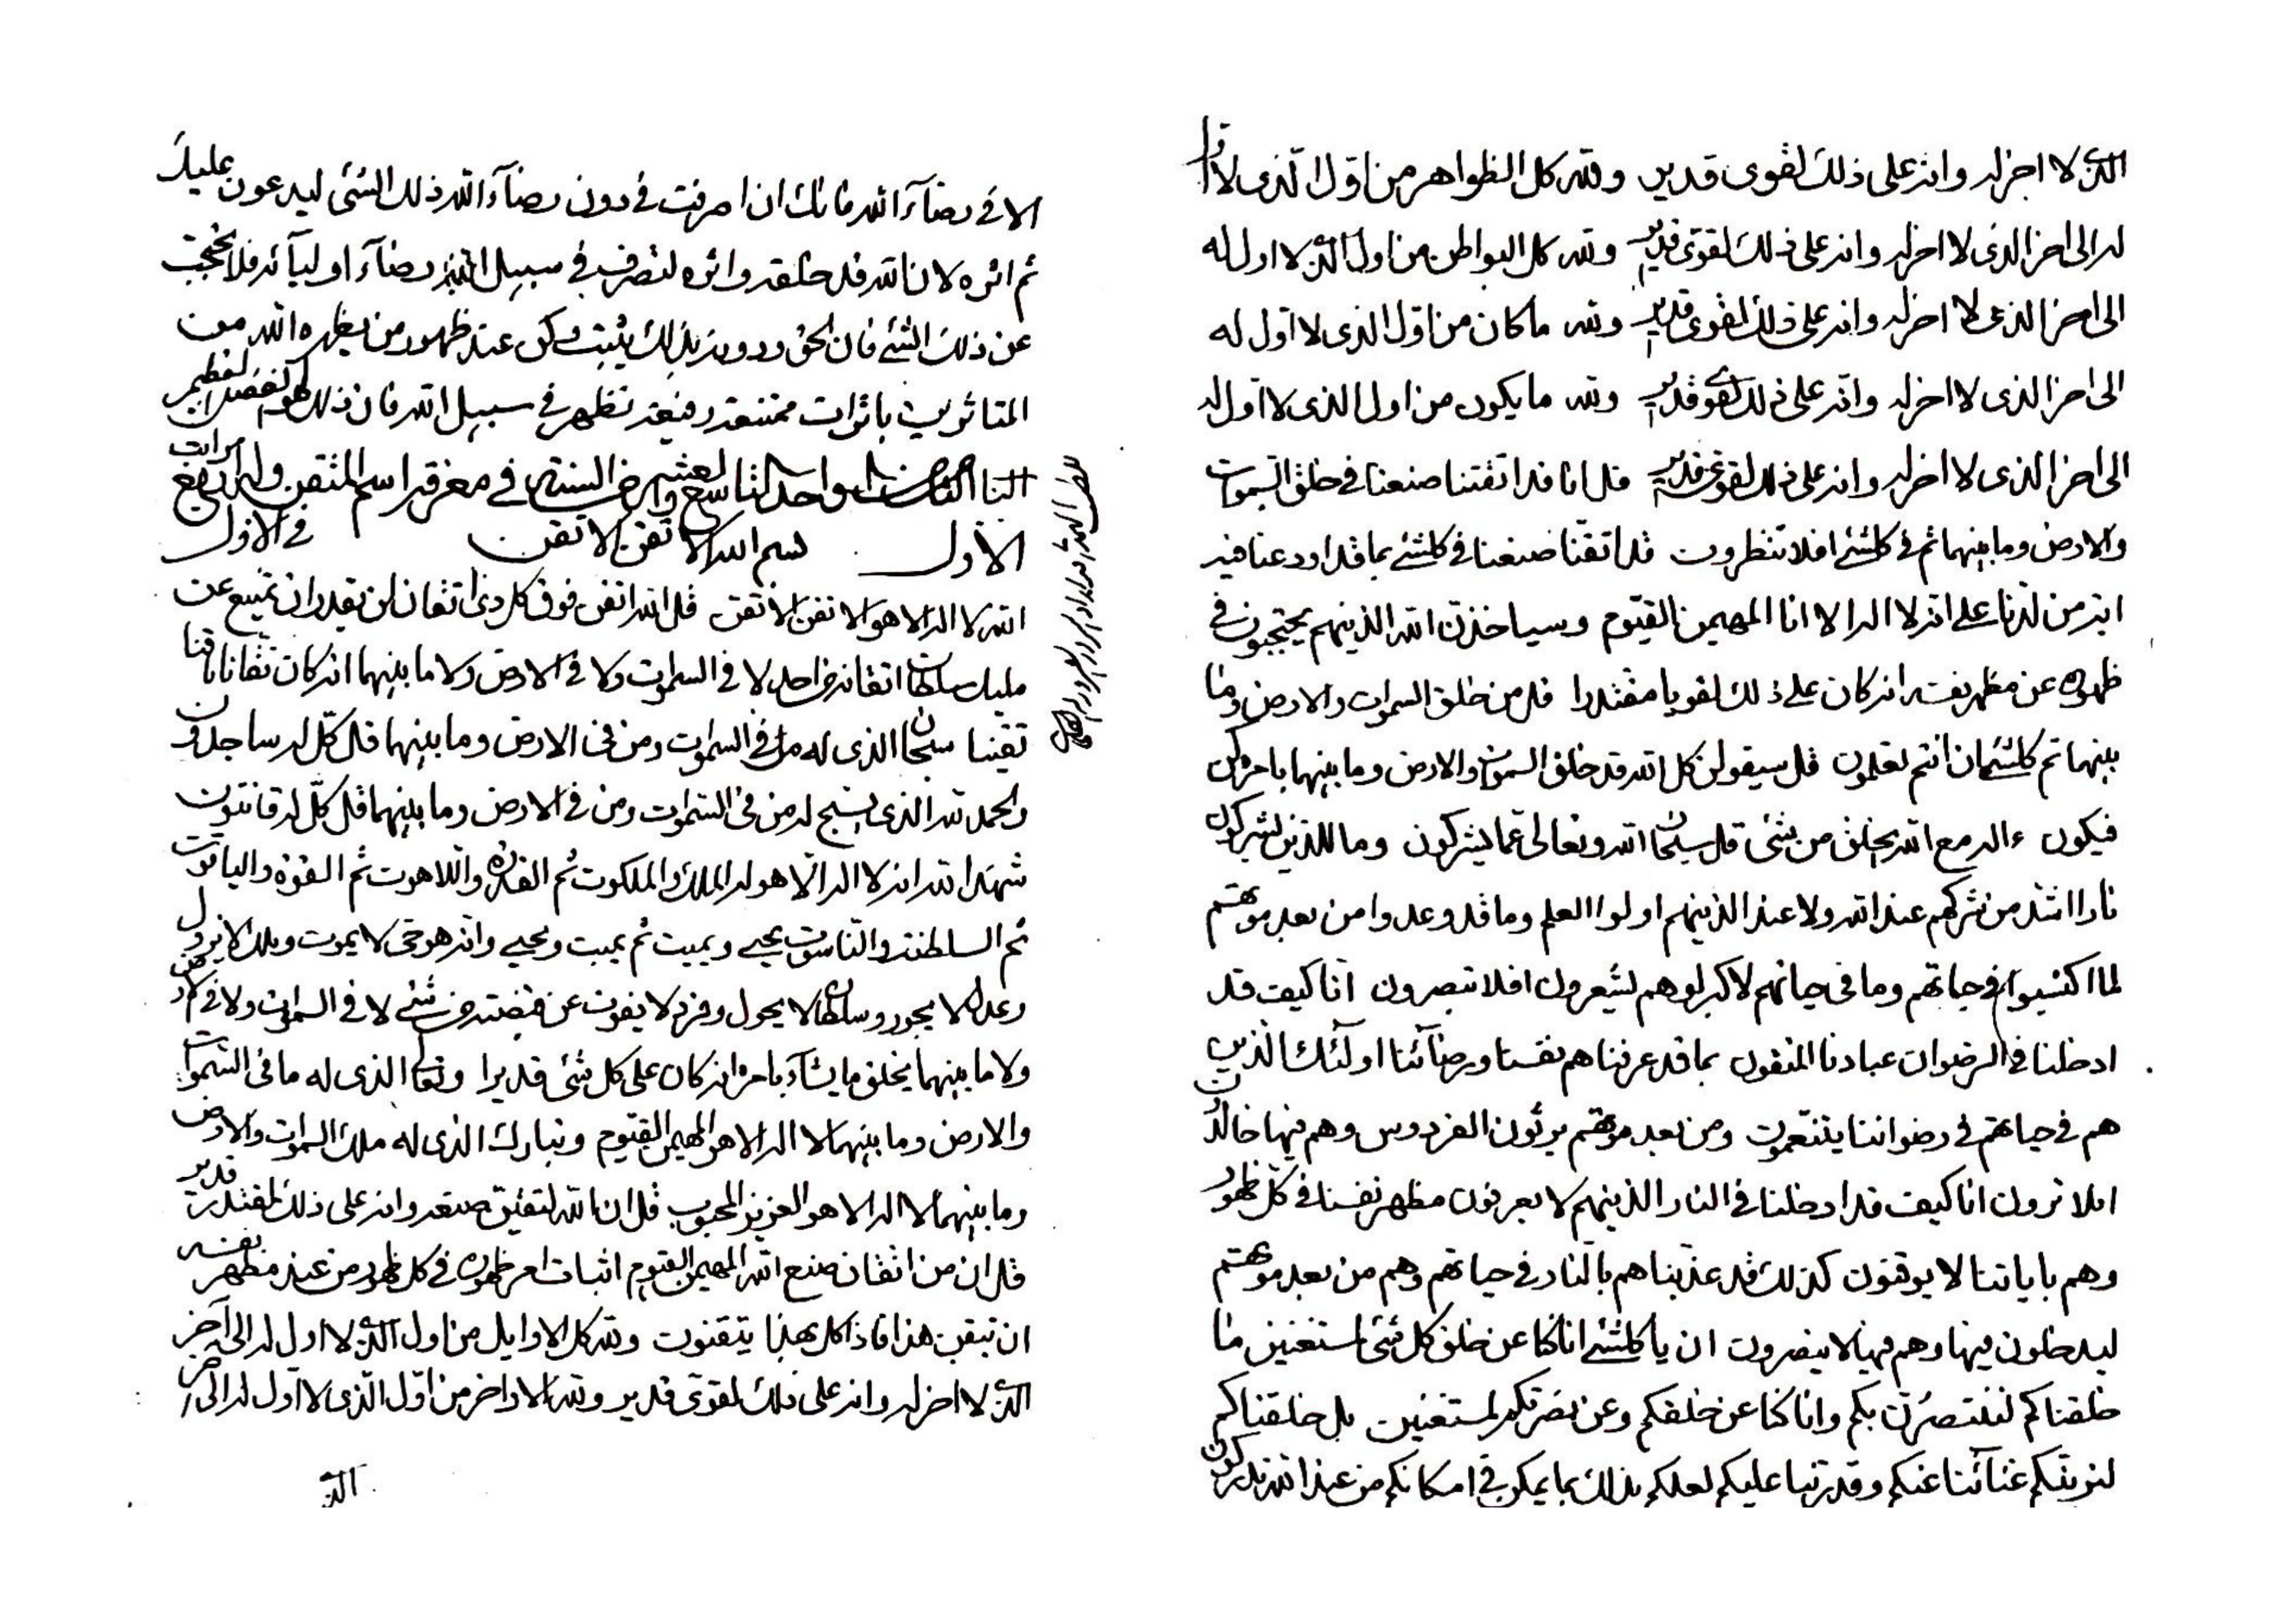 الذی لا اخر له وانه علی ذلك لقوی قدیر ولله كل الظواهر من اول الذی لا اول
له الی اخر الذی لا اخر له وانه علی ذلك لقوی قدیر ولله كل البواطن من اول الذی لا اول له
الی اخر الذی لا اخر له وانه علی ذلك لقوی قدیر ولله ما كان من اول الذی لا اول له
الی اخر الذی لا اخر له وانه علی ذلك لقوی قدیر ولله ما یكون من اول الذی لا اول له
الی اخر الذی لا اخر له وانه علی ذلك لقوی قدیر قل انا قد اتقنا صنعنا فی خلق السموات
والارض وما بینهما ثم فی كلشئ افلا تنظرون قد اتقنا صنعنا فی كلشئ بما قد اودعنا فیه
ایة من لدنا علی انه لا اله الا انا المهیمن القیوم وسیاخذن الله الذینهم یحتجبون فی
ظهوره عن مظهر نفسه انه كان علی ذلك لقویا مقتدرا قل من خلق السموات والارض وما
بینهما ثم كلشئ ان انتم تعلمون قل سیقولن كل الله قد خلق السموات والارض وما بینهما بامره كن
فیكون ءاله مع الله یخلق من شئ قل سبحان الله وتعالی عما یشركون وما للذین یشركون
نارا اشد من شركهم عند الله ولا عند الذینهم اولوا العلم وما قد وعدوا من بعد موتهم
لما اكتسبوا فی حیاتهم وما فی حیاتهم لاكبر لو هم یشعرون افلا تبصرون انا كیف قد
ادخلنا فی الرضوان عبادنا المتقون بما قد عرفناهم نفسنا ورضآئنا اولئك الذین
هم فی حیاتهم فی رضواننا یتنعمون ومن بعد موتهم یرثون الفردوس وهم فیها خالدون
افلا ترون انا كیف قد ادخلنا فی النار الذینهم لا یعرفون مظهر نفسنا فی كل ظهور
وهم بایاتنا لا یوقنون كذلك قد عذبناهم بالنار فی حیاتهم وهم من بعد موتهم
لیدخلون فیها وهم فیها لا ینصرون ان یا كلشئ انا كنا عن خلق كل شئ لمستغنین ما
خلقناكم لننتصرن بكم وانا كنا عن خلقكم وعن نصرتكم لمستغنین بل خلقناكم
لنرینكم غنآئنا عنكم وقدرتنا علیكم لعلكم بذلك بما یمكن فی امكانكم من عند الله تدركون
الا فی رضآء الله فانك ان اصرفت فی دون رضآء الله ذلك الشئ لیدعون علیك
ثم اثره لان الله قد خلقه واثره لتصرف فی سبیل الله رضآء اولیآئه فلا تحتجب
عن ذلك الشئ فان الحق ودونه بذلك یثبت ولكن عند ظهور من یظهره الله من
المتاثرین باثرات ممتنعة رفیعة تظهر فی سبیل الله فان ذلك لهو الفضل العظیم
الباب الثامن من الواحد التاسع والعشر من السنة فی معرفة اسم المتقن وله اربع مراتب
الاول بسم الله الاتقن الاتقن فی الاول
الله لا اله الا هو الاتقن الاتقن قل الله اتقن فوق كل ذی اتقان لن یقدر ان یمتنع عن
ملیك سلطان اتقانه من احد لا فی السموات ولا فی الارض ولا ما بینهما انه كان تقانا تاقنا
تقینا سبحان الذی له من فی السموات ومن فی الارض وما بینهما قل كل له ساجدون
والحمد لله الذی یسبح له من فی السموات ومن فی الارض وما بینهما قل كل له قانتون
شهد الله انه لا اله الا هو له الملك والملكوت ثم القدرة واللاهوت ثم القوة والیاقوت
ثم السلطنة والناسوت یحیی ویمیت ثم یمیت ویحیی وانه هو حی لا یموت وملك لا یزول
وعدل لا یجور وسلطان لا یحول وفرد لا یفوت عن قبضته من شئ لا فی السموات ولا فی الارض
ولا ما بینهما یخلق ما یشآء بامره انه كان علی كل شئ قدیرا وتعالی الذی له ما فی السموات
والارض وما بینهما لا اله الا هو المهیمن القیوم وتبارك الذی له ملك السموات والارض
وما بینهما لا اله الا هو العزیز المحبوب قل ان الله لتقین صنعه وانه علی ذلك لمقتدر قدیر
قل ان من اتقان صنع الله المهیمن القیوم اثبات امر ظهوره فی كل ظهور من عند مظهر نفسه
ان تیقن هذا فاذا كل بهذا یتقنون ولله كل الاوایل من اول الذی لا اول له الی آخر
الذی لا اخر له وانه علی ذلك لقوی قدیر ولله الاواخر من اول الذی لا اول له الی اخر
الذی